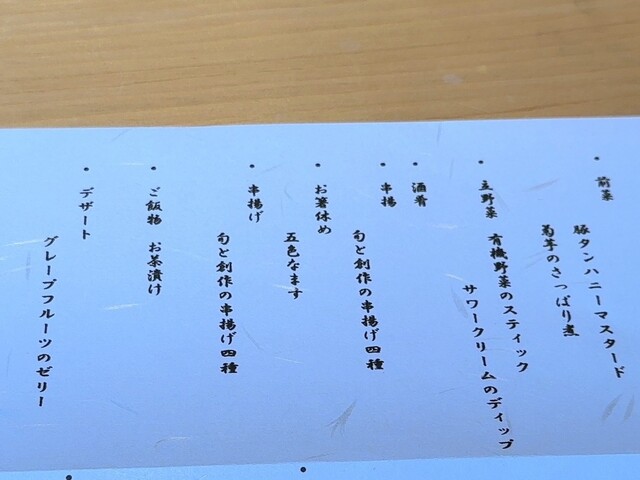 ・前菜
豚タンハニーマスタード
菊芋のさっぱり煮
・立野菜 有機野菜のスティック
サワークリームのディップ
・酒肴
・串揚
旬と創作の串揚げ四種
・お箸休め
五色なます
・串揚げ
旬と創作の串揚げ四種
・ご飯物 お茶漬け
・デザート
グレープフルーツのゼリー